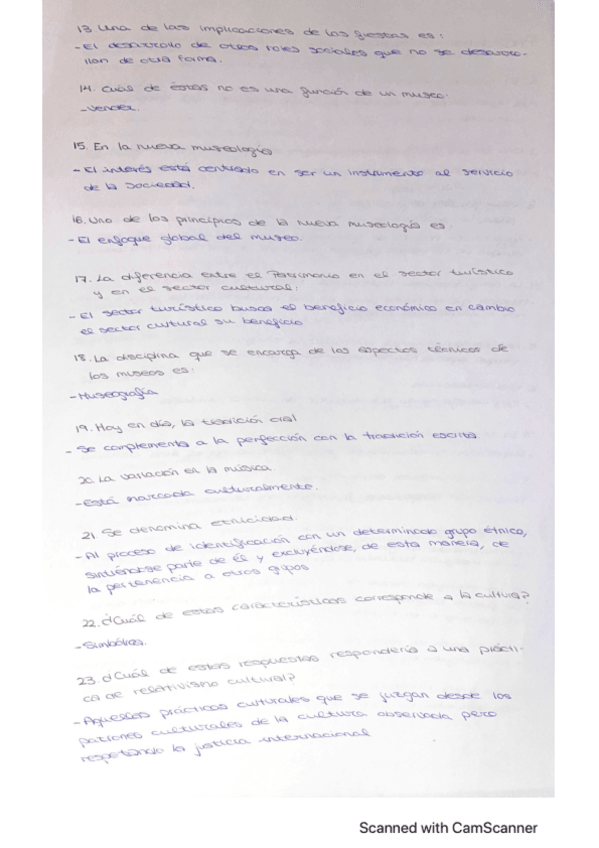 13. Una de las implicaciones de las fiestas es:
- El desarrollo de otros roles sociales que no se desarro-
llan de otra forma.
14. Cuál de éstas no es una función de un museo:
- Vender.
15. En la nueva museología
- El interés está centrado en ser un instrumento al servicio
de la Sociedad.
16. Uno de los principios de la nueva museología es
- El enfoque global del museo.
17. La diferencia entre el Patrimonio en el sector turístico
y en el sector cultural:
- El sector turístico busca el beneficio económico en cambio
el sector cultural su beneficio
18. La disciplina que se encarga de los aspectos técnicos de
los museos es:
- Museografía
19. Hoy en día, la tradición oral
- Se complementa a la perfección con la tradición escrita
20. La variación en la música.
- Está marcada culturalmente.
21. Se denomina etnicidad.
- Al proceso de identificación con un determinado grupo étnico,
sintiéndose parte de él y excluyéndose, de esta manera, de
la pertenencia a otros grupos
22. ¿Cuál de estas características corresponde a la cultura?
- Simbólica.
23. ¿Cuál de estas respuestas respondería a una prácti-
ca de relativismo cultural?
- Aquellas prácticas culturales que se juzgan desde los
patrones culturales de la cultura observada pero
respetando la justicia internacional
Scanned with CamScanner